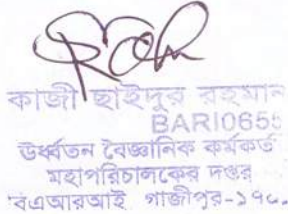 কাজী ছাইদুর রহমান
BARI0655
উর্ধ্বতন বৈজ্ঞানিক কর্মকর্ত
মহাপরিচালকের দপ্তর
বিএআরআই গাজীপুর-১৭০